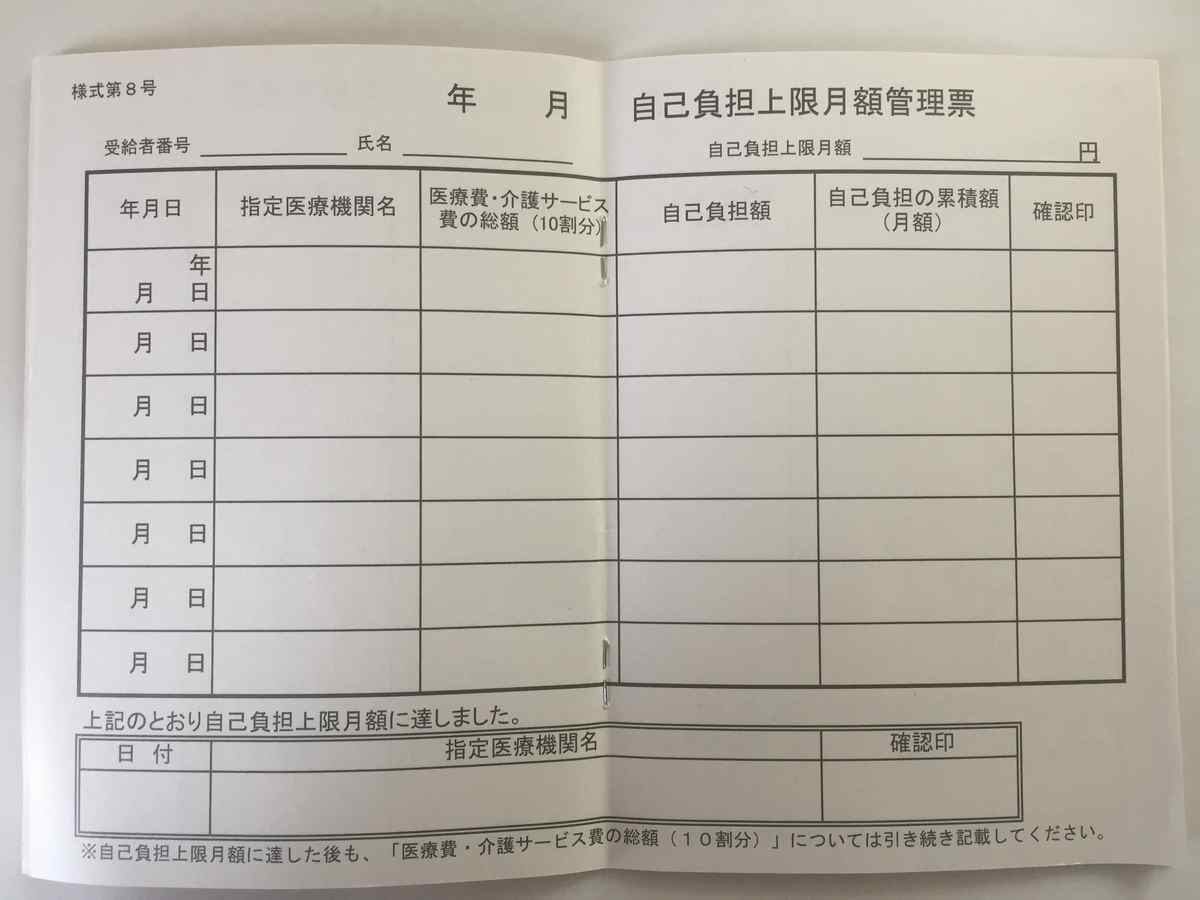 様式第８号
年　月　自己負担上限月額管理票
受給者番号　氏名　自己負担上限月額　円
年月日　指定医療機関名　医療費・介護サービス費の総額（10割分）　自己負担額　自己負担の累積額（月額）　確認印
年
月　日
月　日
月　日
月　日
月　日
月　日
月　日
上記のとおり自己負担上限月額に達しました。
日　付　指定医療機関名　確認印
※自己負担上限月額に達した後も、「医療費・介護サービス費の総額（１０割分）」については引き続き記載してください。